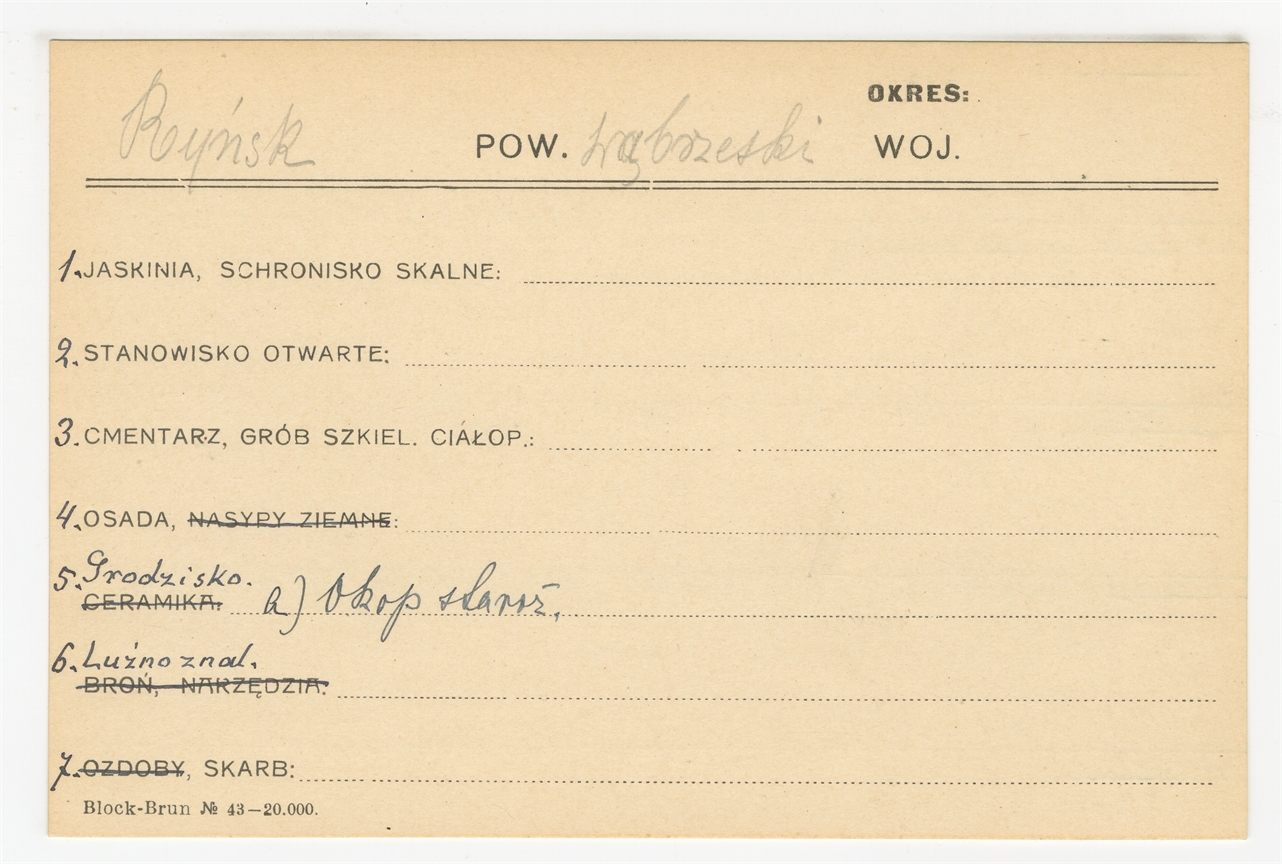 OKRES:
Ryńsk POW. Wąbrzeski WOJ.
1. JASKINIA, SCHRONISKO SKALNE:
2. STANOWISKO OTWARTE:
3. CMENTARZ, GRÓB SZKIEL. CIAŁOP.:
4. OSADA, NASYPY ZIEMNE:
5. Grodzisko.
CERAMIKA: a) Okop staroż.
6. Luźno znal.
BROŃ, NARZĘDZIA:
7. OZDOBY, SKARB:
Block-Brun № 43—20.000.